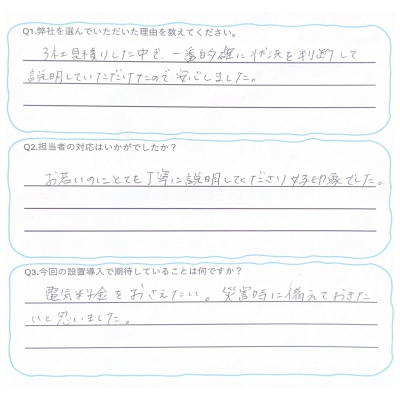 Q1.弊社を選んでいただいた理由を教えてください。
3社見積りした中で、一番的確に状況を判断して
説明していただけたので安心しました。
Q2.担当者の対応はいかがでしたか？
お若いのにとても丁寧に説明してくださり好印象でした。
Q3.今回の設置導入で期待していることは何ですか？
電気料金をおさえたい。災害時に備えておきた
いと思いました。